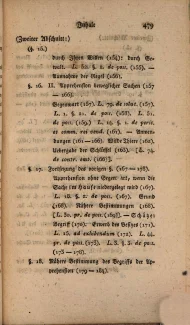 Inhalt 479
(Zweiter Abschnitt:)
(§. 16.)
durch Ihren Willen (154): durch Ge-
walt. L. 52. §. 2. de poss. (155). —
Ausnahme der Regel (156).
§. 16. II. Apprehension beweglicher Sachen (157
— 166).
Gegenwart (157). L. 79. de solut. (157).
L. 1. §. 21. de poss. (158). L. 51.
de poss. (159). L. 14. §. 1. de peric.
et comm. rei vend. (161). — Anwen-
dungen (161—166). Wilde Thiere (166)
Uebergabe der Schlüssel (166). [L. 74.
de contr. emt. (166)].
§. 17. Fortsetzung des vorigen §. (167 — 178).
Apprehension ohne Gegenwart, wenn die
Sache im Hause niedergelegt wird (167).
L. 18. §. 2. de poss. (167). Grund
(168). Nähere Bestimmungen (168).
[L. 30. pr. de poss. (168)]. — Schätze:
Begriff (170): Erwerb des Besitzes (171).
L. 15. ad exhibendum (172). L. 44.
pr. de poss. (173). L. 3. §. 3. de poss.
(175—178).
§. 18. Nähere Bestimmung des Begriffs der Ap-
prehension (179 — 184).